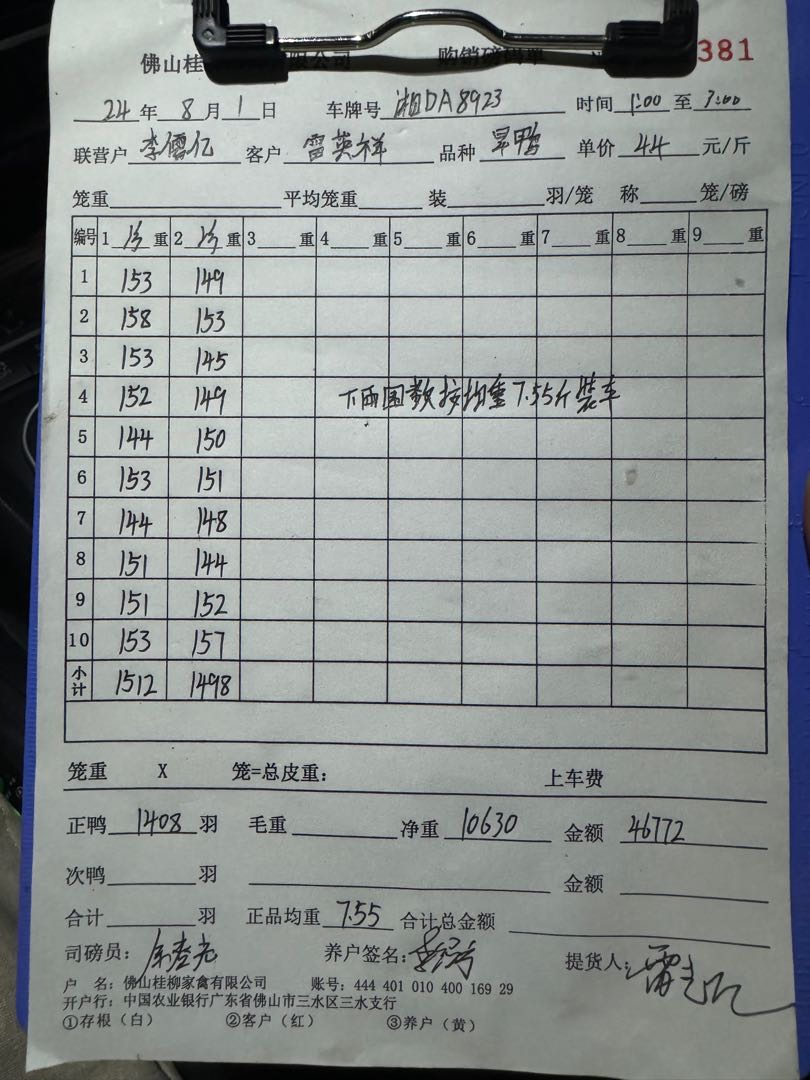 381
24年 8月 1日 车牌号 湘DA8923 时间 1:00 至 3:00
联营户 李儒亿 客户 雷英祥 品种 旱鸭 单价 44 元/斤
笼重 平均笼重 装 羽/笼 称 笼/磅
编号 1 重 2 重 3 重 4 重 5 重 6 重 7 重 8 重 9 重
1 153 149
2 158 153
3 153 145
4 152 149 下面国数按均重7.55斤装车
5 144 150
6 153 151
7 144 148
8 151 144
9 151 152
10 153 157
小计 1512 1498
笼重 X 笼=总皮重: 上车费
正鸭 1408 羽 毛重 净重 10630 金额 46772
次鸭 羽 金额
合计 羽 正品均重 7.55 合计总金额
司磅员: 养户签名: 提货人:
户 名: 佛山桂柳家禽有限公司 账号: 444 401 010 400 169 29
开户行: 中国农业银行广东省佛山市三水区三水支行
①存根（白） ②客户（红） ③养户（黄）